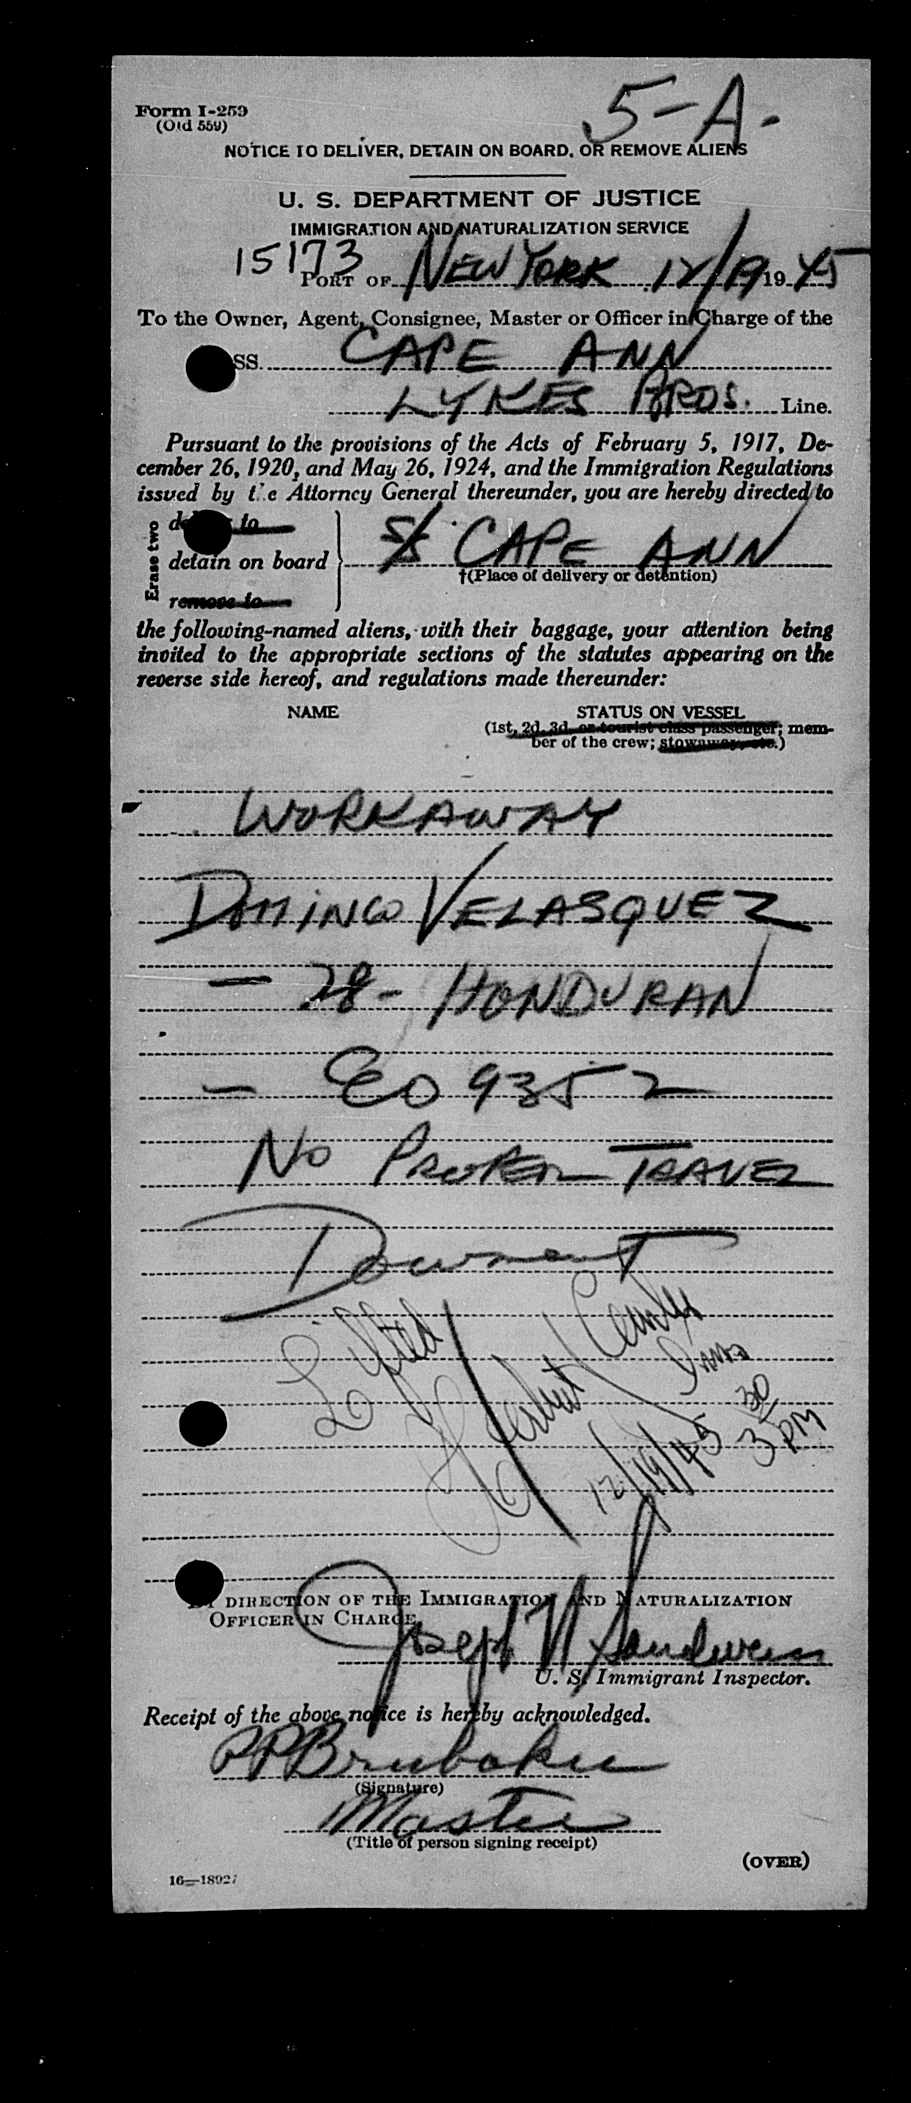 5-A.
Form I-259
(Old 559)
NOTICE TO DELIVER, DETAIN ON BOARD, OR REMOVE ALIENS
U. S. DEPARTMENT OF JUSTICE
IMMIGRATION AND NATURALIZATION SERVICE
15173
PORT OF NEW YORK 12/19 1945
To the Owner, Agent, Consignee, Master or Officer in Charge of the
SS. CAPE ANN
LYKES BROS. Line.
Pursuant to the provisions of the Acts of February 5, 1917, De-
cember 26, 1920, and May 26, 1924, and the Immigration Regulations
issued by the Attorney General thereunder, you are hereby directed to
Erase two
deliver to
detain on board
remove to
S/S CAPE ANN
†(Place of delivery or detention)
the following-named aliens, with their baggage, your attention being
invited to the appropriate sections of the statutes appearing on the
reverse side hereof, and regulations made thereunder:
NAME STATUS ON VESSEL
(1st, 2d, 3d, or tourist class passenger; mem-
ber of the crew; stowaway, etc.)
WORKAWAY
DOMINGO VELASQUEZ
- 28 - HONDURAN
- EO 9352
NO PROPER TRAVEL
DOCUMENT
Lifted
Herbert
12/19/45 3 30 PM
BY DIRECTION OF THE IMMIGRATION AND NATURALIZATION
OFFICER IN CHARGE
Joseph N Sandweiss
U. S. Immigrant Inspector.
Receipt of the above notice is hereby acknowledged.
PP Brubaker
(Signature)
Master
(Title of person signing receipt)
(OVER)
16—18927